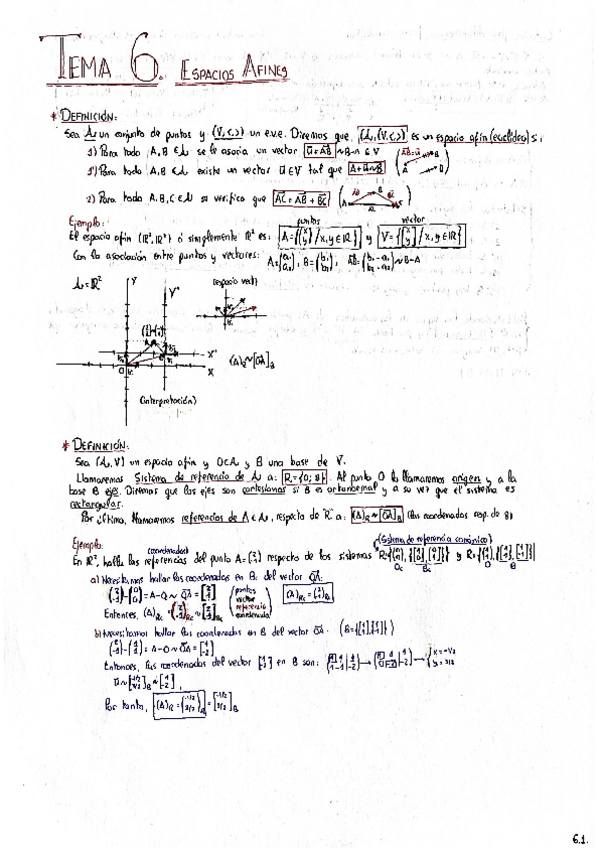 TEMA 6. ESPACIOS AFINES
* DEFINICIÓN:
Sea A un conjunto de puntos y (V, <,>) un e.v.e. Diremos que (A, (V, <,>)) es un espacio afín (euclídeo) si
1) Para todo A, B ∈ A se le asocia un vector ū = AB ~ B-A ∈ V
1') Para todo A, B ∈ A existe un vector ū ∈ V tal que A + ū ~ B
2) Para todo A, B, C ∈ A se verifica que AC = AB + BC
Ejemplo: puntos vector
El espacio afín (R², R²) ó simplemente R² es: A = {(x y) / x, y ∈ R} y V = {[x y] / x, y ∈ R}
Con la asociación entre puntos y vectores: A = (a₁ a₂), B = (b₁ b₂), AB = [b₁ - a₁ b₂ - a₂] ~ B-A
A = R² Y Y' (espacio vect)
X' (A)R ~ [OA]B
O X
(interpretación)
* DEFINICIÓN:
Sea (A, V) un espacio afín y O ∈ A y B una base de V.
Llamaremos Sistema de referencia de A a: R = {O; B}. Al punto O lo llamaremos origen y a la
base B ejes. Diremos que los ejes son cartesianos si B es ortonormal y a su vez que el sistema es
rectangular.
Por último, llamaremos referencias de A ∈ A, respecto de R a: (A)R ~ [OA]B (las coordenadas resp. de B)
Ejemplo: (coordenadas) (Sistema de referencia canónico)
En R², halla las referencias del punto A = respecto de los sistemas
a) Necesitamos hallar las coordenadas en Bc del vector OA:
= A-O ~ OA = (puntos vector referencia coordenada)
Entonces, (A)Rc =
b) Necesitamos hallar las coordenadas en B del vector OA.
= A-O ~ OA = [1 -2]
Entonces, las coordenadas del vector en B son: x = -1/2 y = 3/2
Por tanto, (A)R = (-1/2 3/2)R = [-1/2 3/2]B
6.1.